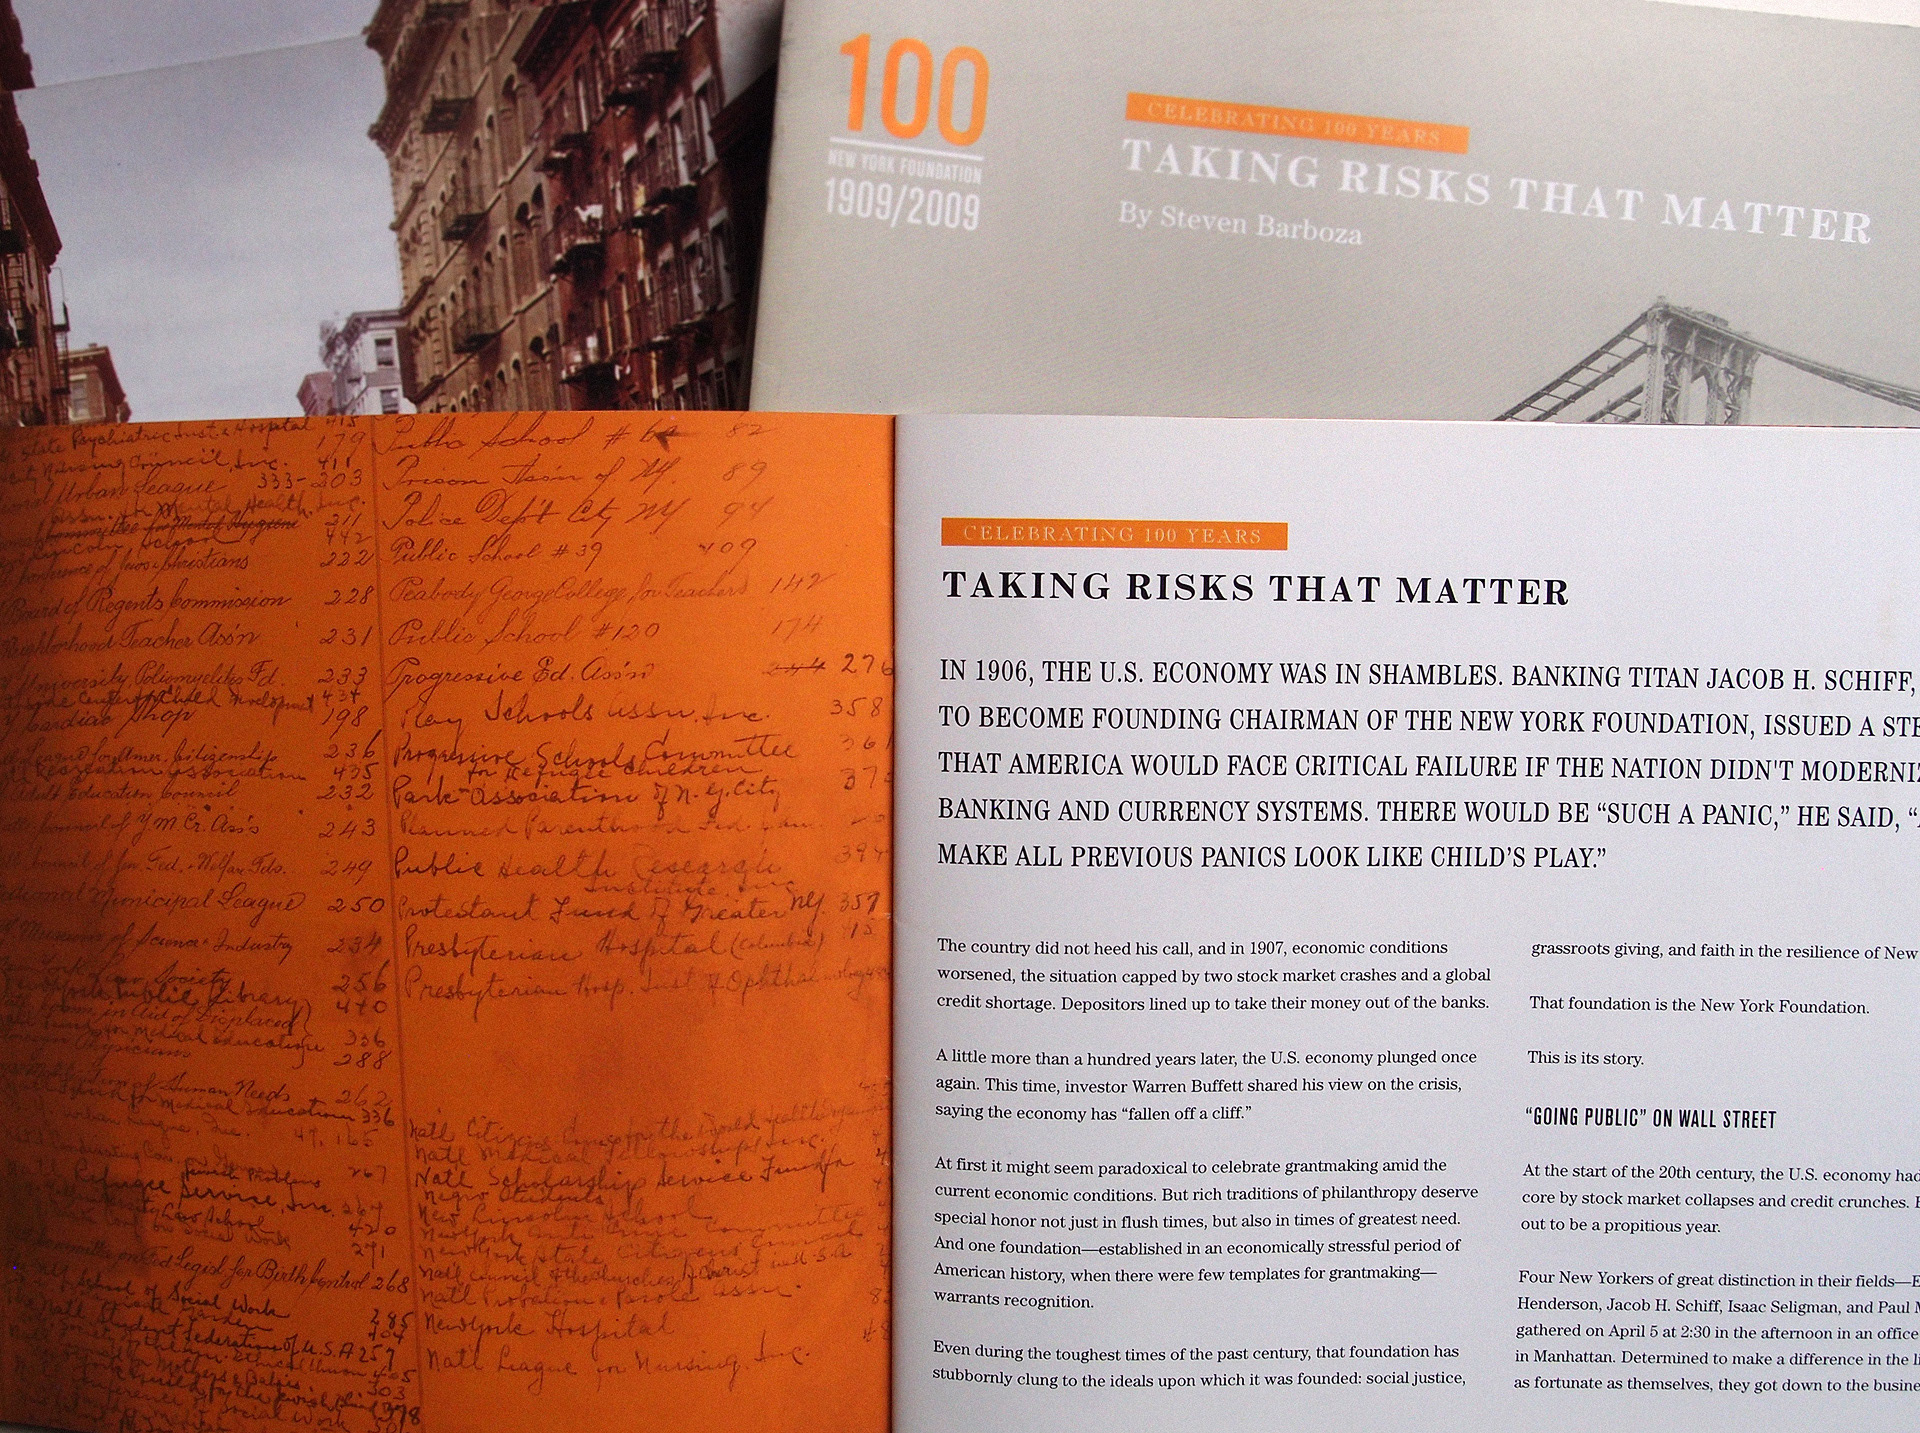 100
NEW YORK FOUNDATION
1909/2009
CELEBRATING 100 YEARS
TAKING RISKS THAT MATTER
By Steven Barboza
State Psychiatric Inst. & Hospital 415
179
Nursing Council, Inc. 411
Urban League 333-203
Assn. for Mental Health, Inc.
211
Lincoln School 442
Conference of Jews & Christians 222
Board of Regents Commission 228
Neighborhood Teacher Ass'n 231
University Poliomyelitis Fd. 233
Center Child Development 434
Cardiac Shop 198
League for Amer. Citizenship 236
Recreation Association 435
Adult Education Council 232
Council of Y.M.Cr. Ass's 243
Council of Jew Fed. & Welfare Fds. 249
Municipal League 250
Museums of Science & Industry 234
Law Society 256
Public Library 440
in Aid of Displaced
for Medical Education 336
Physicians 288
of Human Needs 262
for Medical Education 336
League, Inc. 49, 165
Problems 267
Refugee Service, Inc. 264
Law School 420
on Social Work 271
Committee on Fed Legisl for Birth Control 268
School of Social Work 285
Garden 404
Student Federation of U.S.A 257
303
378
Social Work
Public School #69 82
Prison Ass'n of NY. 89
Police Dep't City NY 94
Public School #39 409
Peabody George College for Teachers 142
Public School #120 174
Progressive Ed. Ass'n 276
Play Schools Assn. Inc. 358
Progressive Schools Committee 361
for Refugee Children
Park Association of N.Y. City
Planned Parenthood Fed.
Public Health Research
Institute, Inc.
Protestant Fund of Greater NY. 357
Presbyterian Hospital (Columbia) 15
Presbyterian Hosp. Inst of Ophthalmology
Nat'l Citizens
Nat'l Medical Fellowships Inc.
Nat'l Scholarship Service Fund for
Negro Students
New Lincoln School
New York Anti Crime Committee
New York State Citizens Council
Nat'l Council of the Churches of Christ in U.S.A
Nat'l Probation & Parole Assn.
New York Hospital
Nat'l League for Nursing, Inc.
CELEBRATING 100 YEARS
TAKING RISKS THAT MATTER
IN 1906, THE U.S. ECONOMY WAS IN SHAMBLES. BANKING TITAN JACOB H. SCHIFF,
TO BECOME FOUNDING CHAIRMAN OF THE NEW YORK FOUNDATION, ISSUED A STE
THAT AMERICA WOULD FACE CRITICAL FAILURE IF THE NATION DIDN'T MODERNIZ
BANKING AND CURRENCY SYSTEMS. THERE WOULD BE “SUCH A PANIC,” HE SAID, “
MAKE ALL PREVIOUS PANICS LOOK LIKE CHILD'S PLAY.”
The country did not heed his call, and in 1907, economic conditions
worsened, the situation capped by two stock market crashes and a global
credit shortage. Depositors lined up to take their money out of the banks.
A little more than a hundred years later, the U.S. economy plunged once
again. This time, investor Warren Buffett shared his view on the crisis,
saying the economy has “fallen off a cliff.”
At first it might seem paradoxical to celebrate grantmaking amid the
current economic conditions. But rich traditions of philanthropy deserve
special honor not just in flush times, but also in times of greatest need.
And one foundation—established in an economically stressful period of
American history, when there were few templates for grantmaking—
warrants recognition.
Even during the toughest times of the past century, that foundation has
stubbornly clung to the ideals upon which it was founded: social justice,
grassroots giving, and faith in the resilience of New
That foundation is the New York Foundation.
This is its story.
“GOING PUBLIC” ON WALL STREET
At the start of the 20th century, the U.S. economy had
core by stock market collapses and credit crunches.
out to be a propitious year.
Four New Yorkers of great distinction in their fields—E
Henderson, Jacob H. Schiff, Isaac Seligman, and Paul
gathered on April 5 at 2:30 in the afternoon in an office
in Manhattan. Determined to make a difference in the li
as fortunate as themselves, they got down to the busine